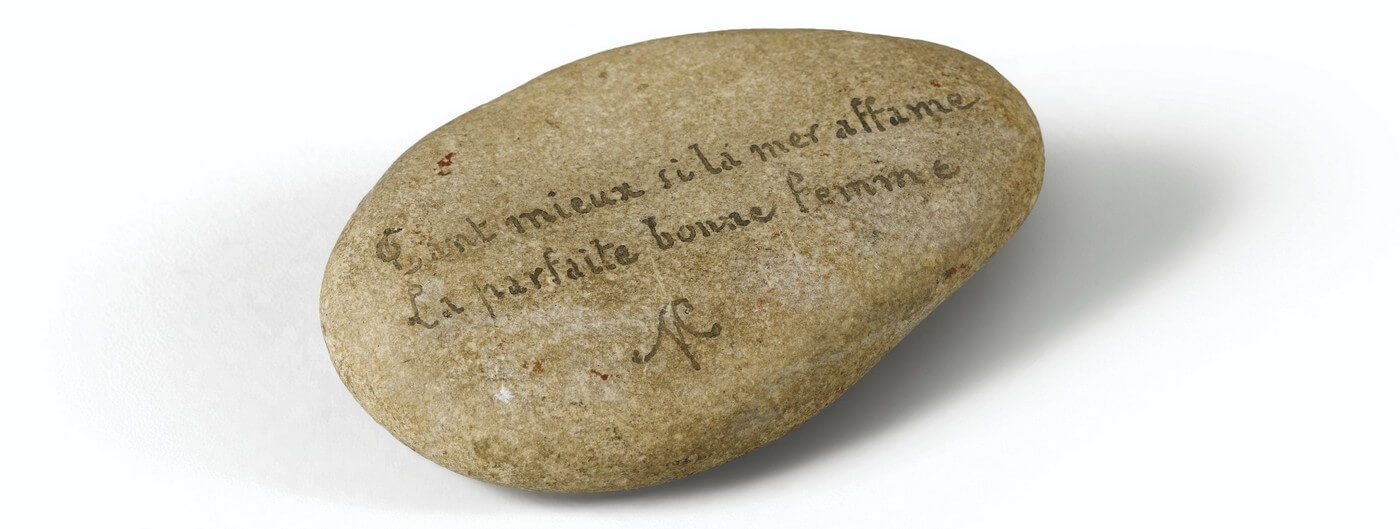 Tant mieux si la mer affame
La parfaite bonne femme